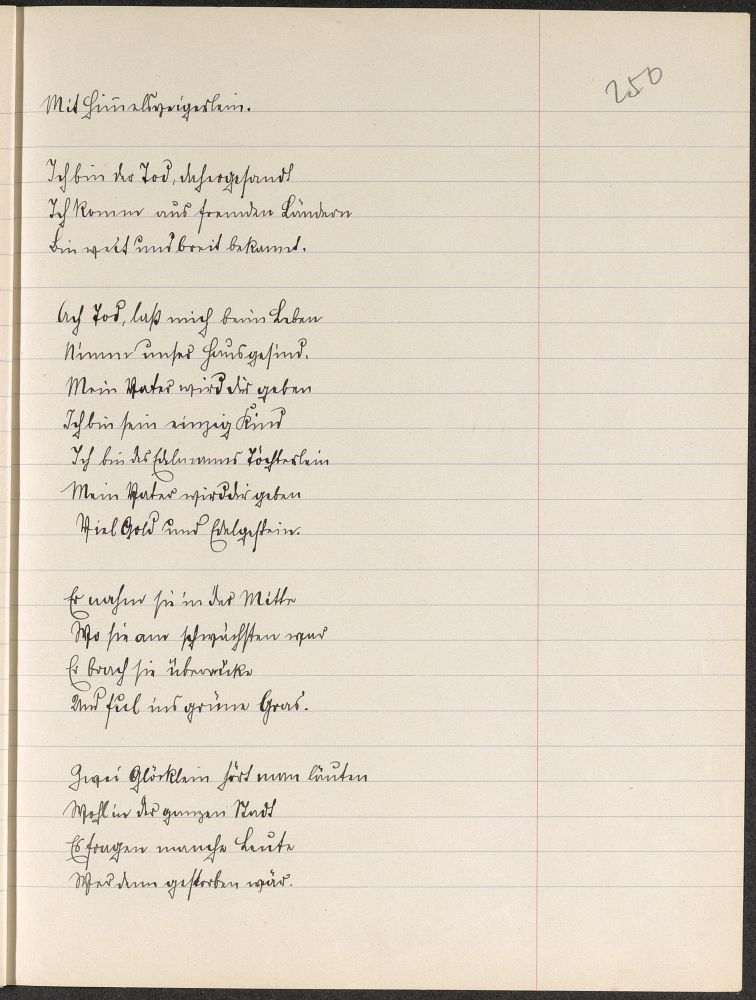 250
Mit Himelszeigerlein.
Ich bin der Tod, dahergesandt
Ich komm aus fremden Ländern
Bin weit und breit bekannt.
Ach Tod, laß mich beim Leben
Nimm unser Hausgesind.
Mein Vater wird dir geben
Ich bin sein einzig Kind
Ich bin des Edelmanns Töchterlein
Mein Vater wird dir geben
Viel Gold und Edelgestein.
Er nahm sie in der Mitte
Wo sie am schwächsten war
Er brach sie überrücke
Und fiel ins grüne Gras.
Zwei Glöcklein hört man läuten
Wohl in der ganzen Stadt
Es fragen manche Leute
Wer denn gestorben wär.